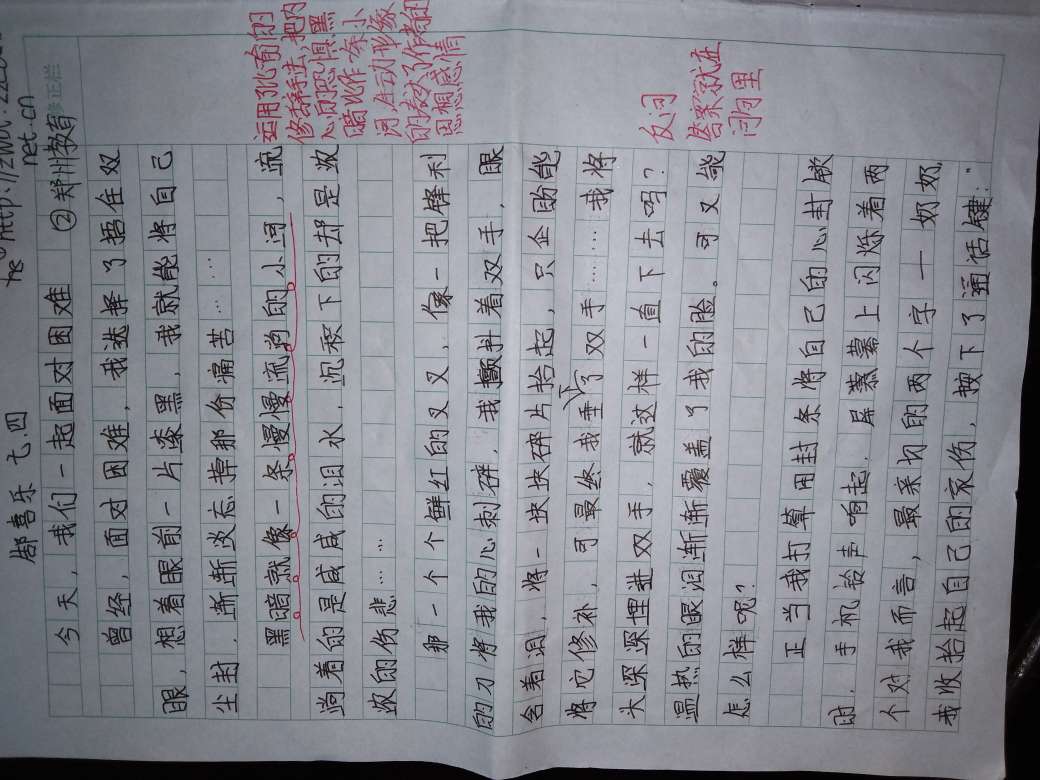 郜喜乐 七.四
he ① http://zwdt:zzedu.
net.cn
今天，我们一起面对困难 ②郑州教育
修正栏
曾经，面对困难，我选择了捂住双
眼，想着眼前一片漆黑，我就能将自己
尘封，渐渐淡忘掉那份痛苦……
黑暗就像一条慢慢流淌的小河，流
淌着的是咸咸的泪水，沉积下的却是浓
浓的伤悲……
那一个个鲜红的叉叉，像一把锋利
的刀将我的心刺碎，我颤抖着双手，眼
含着泪，将一块块碎片拾起，只企盼能
将它修补，可最终我垂下了双手……我将
头深深埋进双手，就这样一直下去吗？
温热的眼泪渐渐覆盖了我的脸。可又能
怎么样呢？
正当我打算用封条将自己的心封锁
时，手机铃声响起，屏幕幕上闪烁着两
个对我而言，最亲切的两个字——奶奶
我收拾起自己的哀伤，按下了通话键："
运用了比喻的
修辞手法，把内
心的恐惧黑
暗比作一条小
河，生动形象
的表达了作者的
思想感情
反问
答案就在
问句里